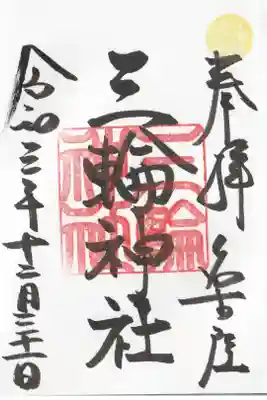 奉拝 名古屋
三輪神社
令和三年十二月 十一日
三輪神社